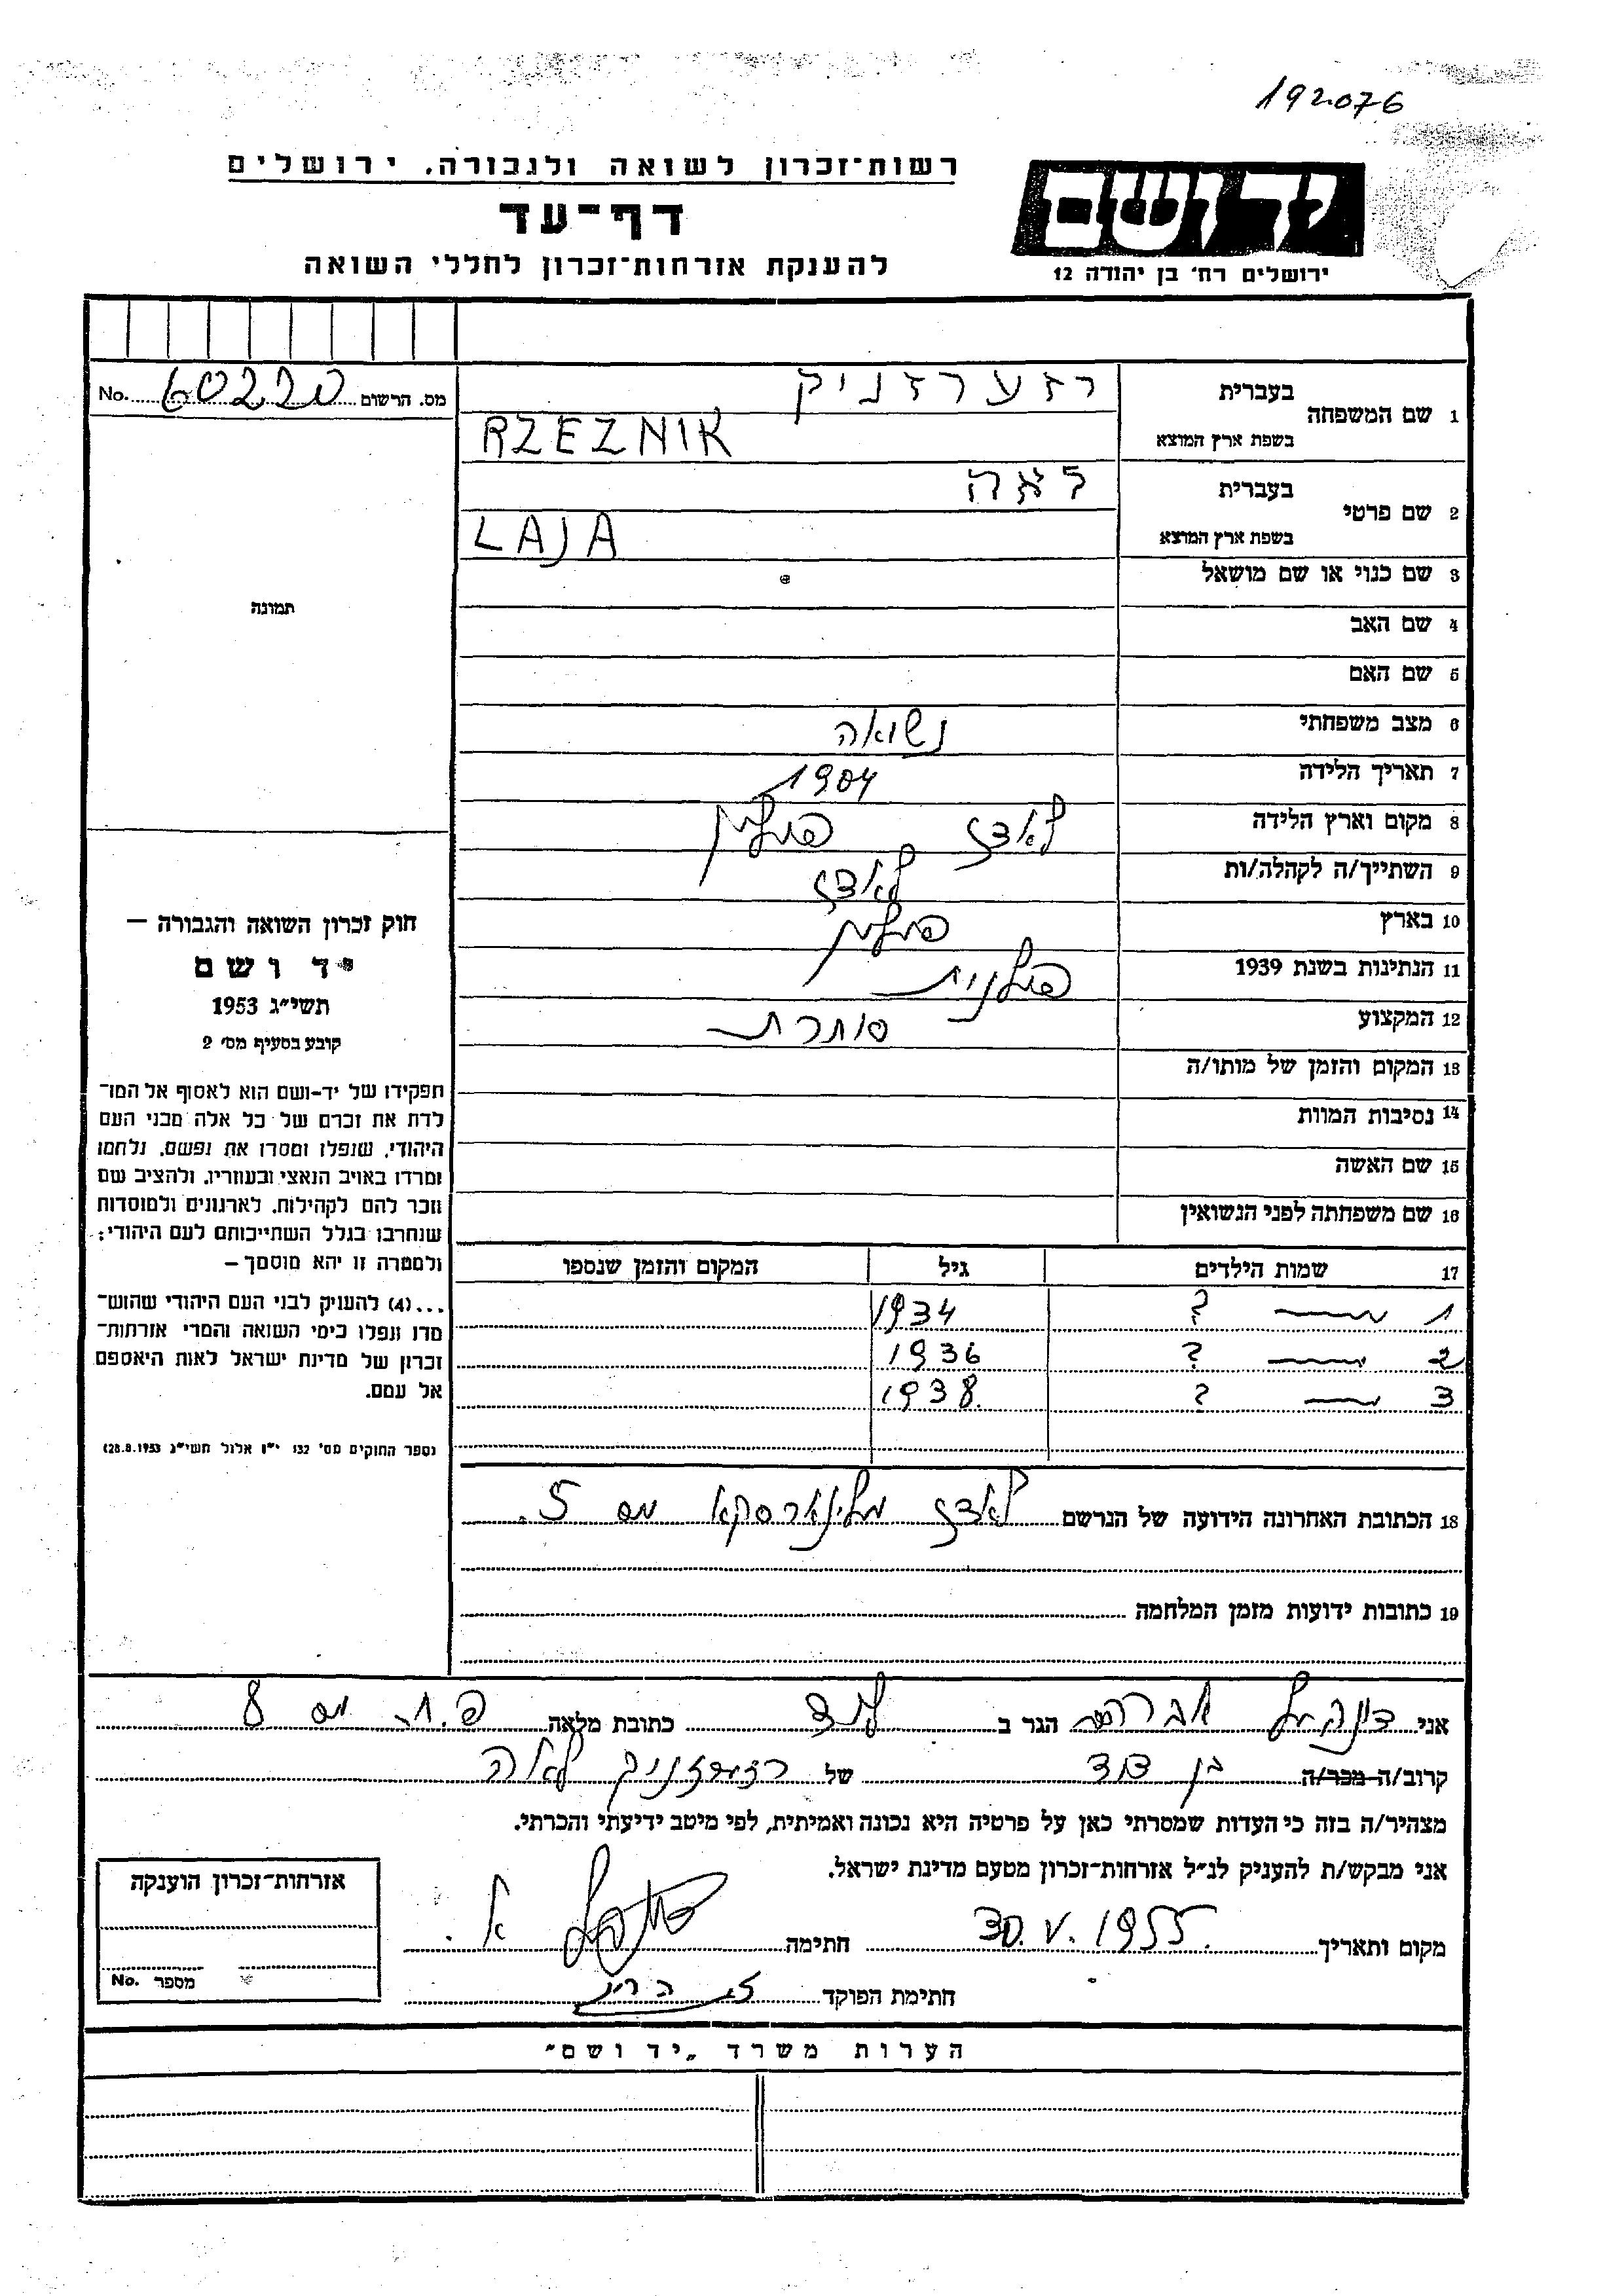 192076
רשות־זכרון לשואה ולגבורה. ירושלים
דף־עד
להענקת אזרחות־זכרון לחללי השואה
יד ושם
ירושלים רח׳ בן יהודה 12
1 שם המשפחה בעברית רזערזניק
בשפת ארץ המוצא RZEZNIK
מס. הרשום 60220 No.
2 שם פרטי בעברית לאה
בשפת ארץ המוצא LAJA
3 שם כנוי או שם מושאל
4 שם האב
5 שם האם
6 מצב משפחתי נשואה
7 תאריך הלידה 1904
8 מקום וארץ הלידה לאדז פולין
9 השתייך/ה לקהלה/ות לאדז
10 בארץ פולין
11 הנתינות בשנת 1939 פולנית
12 המקצוע סוחרת
13 המקום והזמן של מותו/ה
14 נסיבות המוות
15 שם האשה
16 שם משפחתה לפני הנשואין
17 שמות הילדים גיל המקום והזמן שנספו
1 — ? 1934
2 — ? 1936
3 — ? 1938
18 הכתובת האחרונה הידועה של הנרשם לאדז מלינארסקא מס 5.
19 כתובות ידועות מזמן המלחמה
תמונה
חוק זכרון השואה והגבורה —
יד ושם
תשי״ג 1953
קובע בסעיף מס׳ 2
תפקידו של יד-ושם הוא לאסוף אל המו־
לדת את זכרם של כל אלה מבני העם
היהודי, שנפלו ומסרו את נפשם, נלחמו
ומרדו באויב הנאצי ובעוזריו, ולהציב שם
וזכר להם לקהילות, לארגונים ולמוסדות
שנחרבו בגלל השתייכותם לעם היהודי;
ולמטרה זו יהא מוסמך —
...(4) להעניק לבני העם היהודי שהוש־
מדו ונפלו בימי השואה והמרי אזרחות־
זכרון של מדינת ישראל לאות היאספם
אל עמם.
(ספר החוקים מס׳ 132 י״ז אלול תשי״ג 28.8.1953)
אני אברהם הגר ב לוד כתובת מלאה מס 8
קרוב/ה מכר/ה בן דוד של רזערזניק לאה
מצהיר/ה בזה כי העדות שמסרתי כאן על פרטיה היא נכונה ואמיתית, לפי מיטב ידיעתי והכרתי.
אני מבקש/ת להעניק לנ״ל אזרחות־זכרון מטעם מדינת ישראל.
מקום ותאריך 30.V.1955. חתימה א.
חתימת הפוקד
אזרחות־זכרון הוענקה
מספר No.
הערות משרד „יד ושם״